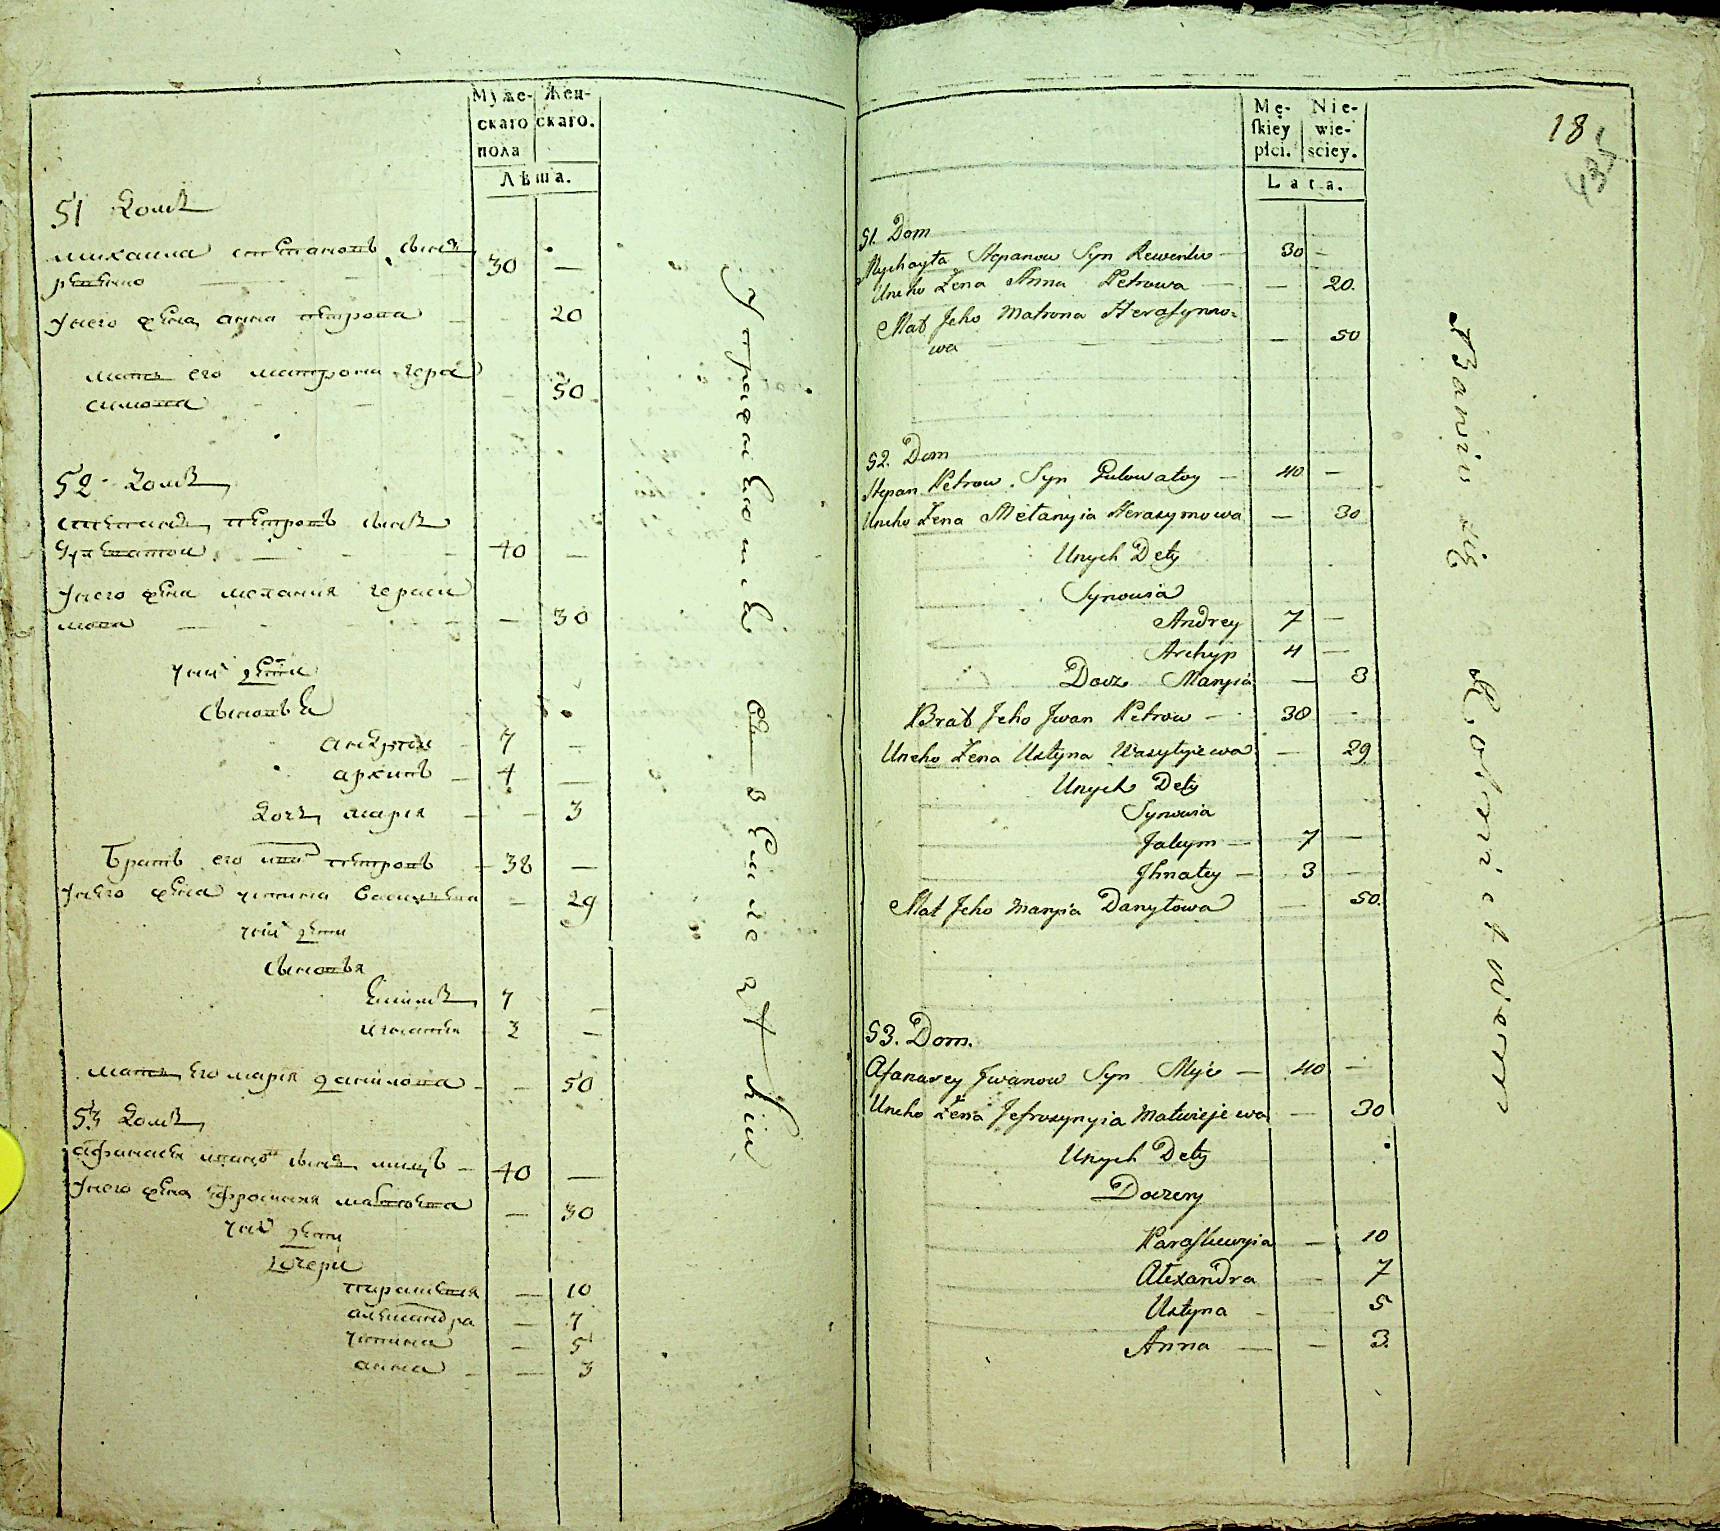 Муже- Жен-
скаго скаго.
пола
Лѣта.
51 домъ
михаила степановъ сынъ 30 —
ревенко
унего жена анна петрова — 20
мать его матрона гера
симова — 50
52 домъ
степанъ петровъ сынъ
40 —
унего жена мелания гераси
мова — — 30
уних дети
сыновья
андрей 7 —
архипъ — 4 —
дочь мария — — 3
братъ его иван петровъ — 38 —
унего жена устина василиева — 29
уних дети
сыновья
ефимъ 7 —
игнатей 3 —
мать его мария данилова — — 50
53 домъ
афанасей иванов сынъ мицъ — 40 —
унего жена ефросиния матвеева — 30
уних дети
дочери
параскевия — 10
александра — 7
устина — 5
анна — — 3
Упражняются
в земледелии
Mę- Nie-
skiey wie-
płci. sciey.
Lata.
18
435
51. Dom
Mychayła Stepanow Syn Rewenko — 30 —
Uneho Żena Anna Petrowa — — 20.
Mat Jeho Matrona Herasymo-
wa — — — 50
52. Dom
Stepan Petrow Syn — 40 —
Uneho Żena Mełanyia Herasymowa — 30
Unych Dety
Synowia
Andrey 7 —
Archyp 4 —
Docz Maryia — 3
Brat Jeho Jwan Petrow — 38 —
Uneho Żena Ustyna Wasylyjewa — 29
Unych Dety
Synowia
Jakym — 7 —
Jhnatey — 3 —
Mat Jeho Maryia Danyłowa — 50.
53. Dom.
Afanasey Jwanow Syn Myc — 40 —
Uneho Żena Jefrosynyia Matwiejewa — 30
Unych Dety
Doczery
Paraskewyia — 10
Alexandra — 7
Ustyna — 5
Anna — — 3.
Bawią się
Rolnictwem